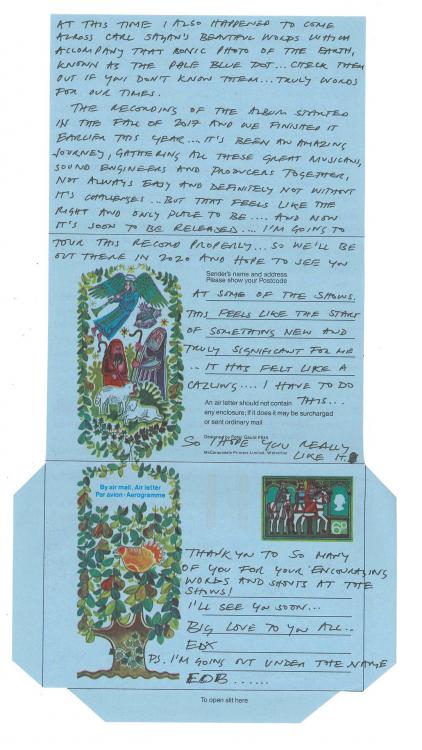 AT THIS TIME I ALSO HAPPENED TO COME
ACROSS CARL SAGAN'S BEAUTIFUL WORDS WHICH
ACCOMPANY THAT ICONIC PHOTO OF THE EARTH,
KNOWN AS THE PALE BLUE DOT... CHECK THEM
OUT IF YOU DON'T KNOW THEM... TRULY WORDS
FOR OUR TIMES.
THE RECORDING OF THE ALBUM STARTED
IN THE FALL OF 2017 AND WE FINISHED IT
EARLIER THIS YEAR... IT'S BEEN AN AMAZING
JOURNEY, GATHERING ALL THESE GREAT MUSICIANS,
SOUND ENGINEERS AND PRODUCERS TOGETHER,
NOT ALWAYS EASY AND DEFINITELY NOT WITHOUT
IT'S CHALLENGES... BUT THAT FEELS LIKE THE
RIGHT AND ONLY PLACE TO BE.... AND NOW
IT'S SOON TO BE RELEASED.... I'M GOING TO
TOUR THIS RECORD PROPERLY... SO WE'LL BE
OUT THERE IN 2020 AND HOPE TO SEE YOU
Sender's name and address
Please show your Postcode
AT SOME OF THE SHOWS.
THIS FEELS LIKE THE START
OF SOMETHING NEW AND
TRULY SIGNIFICANT FOR ME
... IT HAS FELT LIKE A
CALLING.... I HAVE TO DO
THIS...
An air letter should not contain
any enclosure; if it does it may be surcharged
or sent ordinary mail
SO I HOPE YOU REALLY
LIKE IT.
Designed by Peter Gauld FSIA
McCorquodale Printers Limited, Wolverton
By air mail. Air letter
Par avion · Aerogramme
6D
THANK YOU TO SO MANY
OF YOU FOR YOUR ENCOURAGING
WORDS AND SHOUTS AT THE
SHOWS!
I'LL SEE YOU SOON...
BIG LOVE TO YOU ALL..
EDX
PS. I'M GOING OUT UNDER THE NAME
EOB......
To open slit here